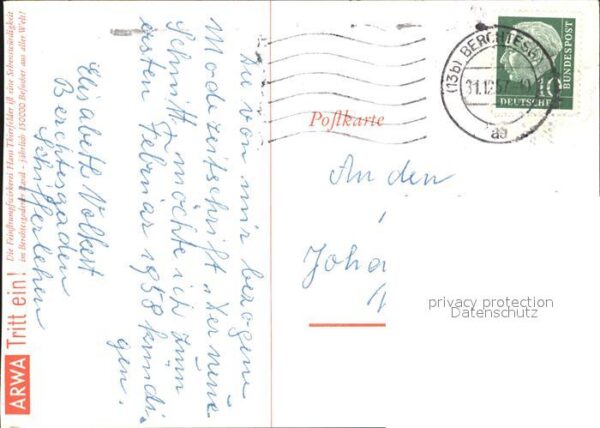 Die Feinstrumpfwirkerei Hans Thierfelder ist eine Sehenswürdigkeit
im Berchtesgadener Land - jährlich 150000 Besucher aus aller Welt!
ARWA Tritt ein!
Elisabeth Volkert
Berchtesgaden
Schifferlehen
Die von mir bezogene
Modezeitschrift „Der neue
Schnitt" möchte ich zum
ersten Februar 1958 kündi
gen.
Postkarte
(13b) BERCHTESG
31.12.57
DEUTSCHE
BUNDESPOST
10
An den
Joha
privacy protection
Datenschutz